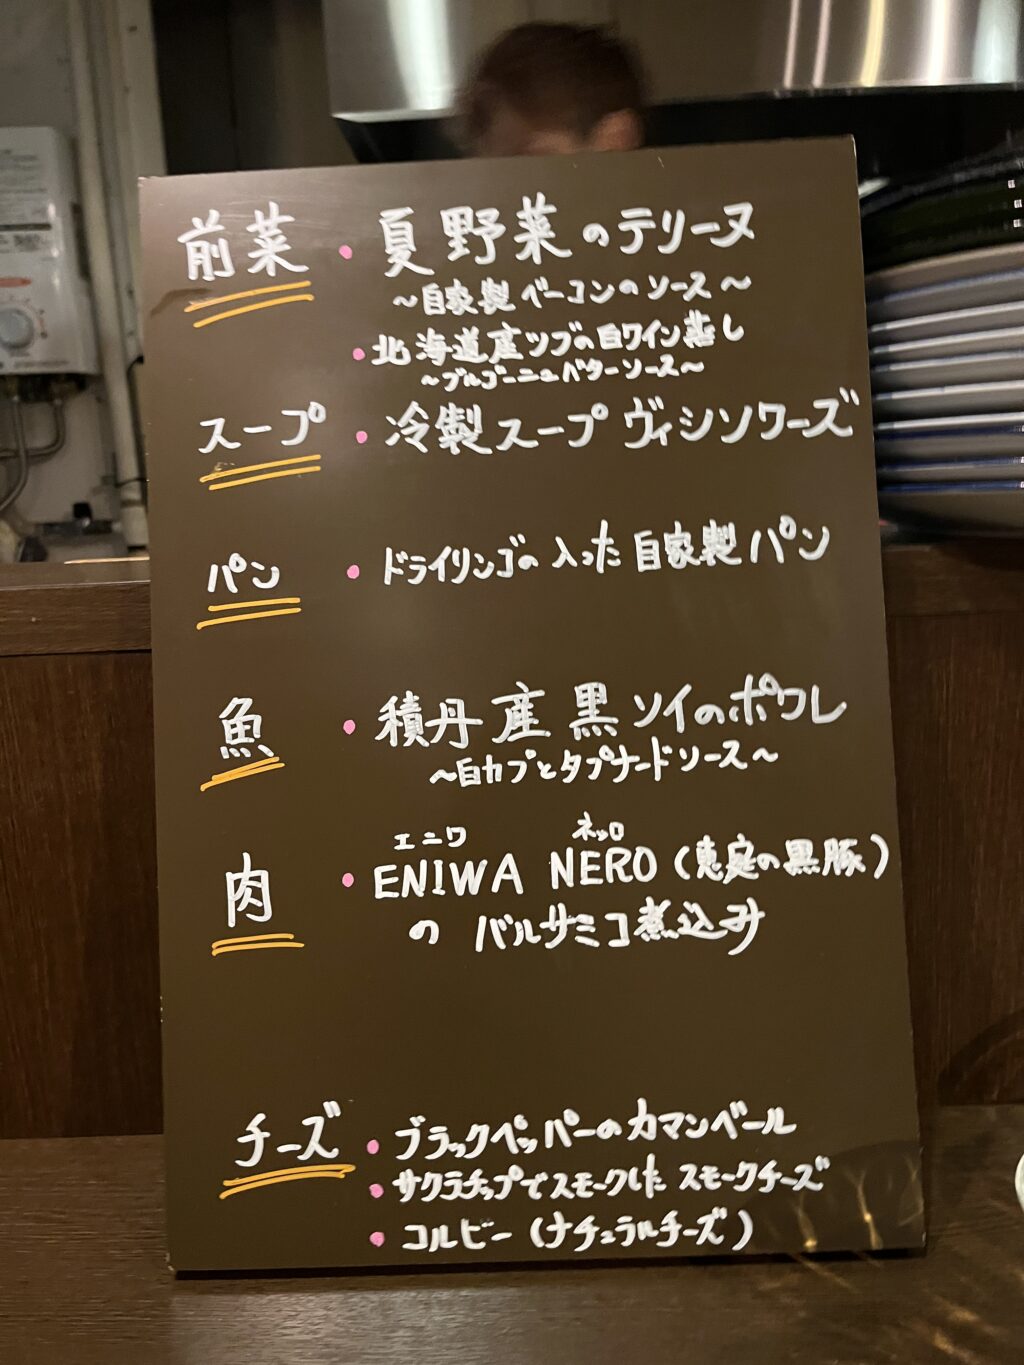 前菜 ・夏野菜のテリーヌ
～自家製ベーコンのソース～
・北海道産ツブの白ワイン蒸し
～ブルゴーニュバターソース～
スープ ・冷製スープ ヴィシソワーズ
パン ・ドライリンゴの入った自家製パン
魚 ・積丹産黒ソイのポワレ
～白カブとタプナードソース～
エニワ ネッロ
肉 ・ENIWA NERO (恵庭の黒豚)
の バルサミコ煮込み
チーズ ・ブラックペッパーのカマンベール
・サクラチップでスモークした スモークチーズ
・コルビー (ナチュラルチーズ)